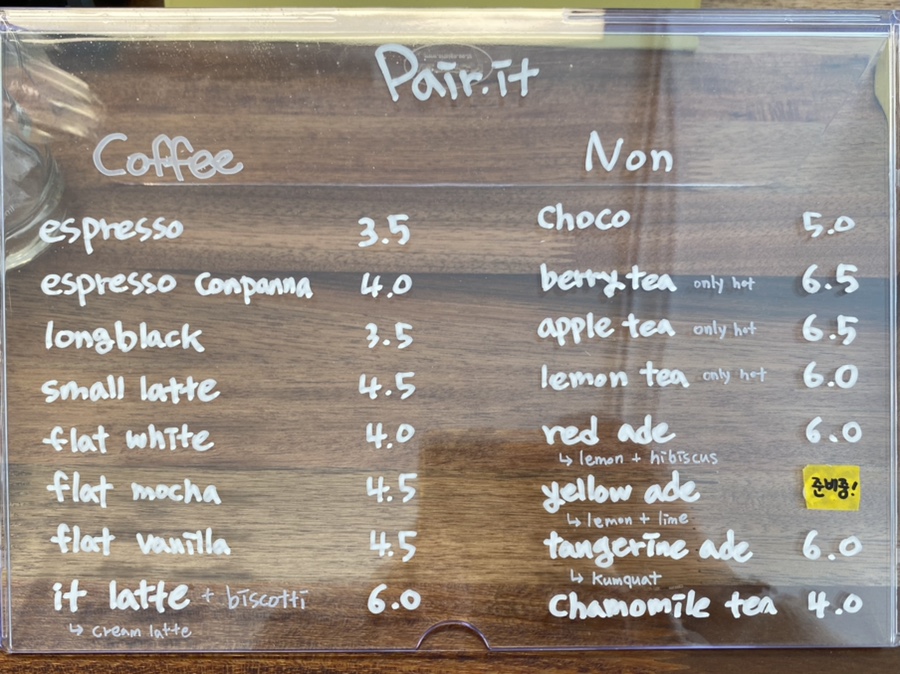 Pair.it
Coffee
espresso 3.5
espresso conpanna 4.0
longblack 3.5
small latte 4.5
flat white 4.0
flat mocha 4.5
flat vanilla 4.5
it latte + biscotti 6.0
↳ cream latte
Non
choco 5.0
berry tea only hot 6.5
apple tea only hot 6.5
lemon tea only hot 6.0
red ade 6.0
↳ lemon + hibiscus
yellow ade 준비중!
↳ lemon + lime
tangerine ade 6.0
↳ kumquat
Chamomile tea 4.0